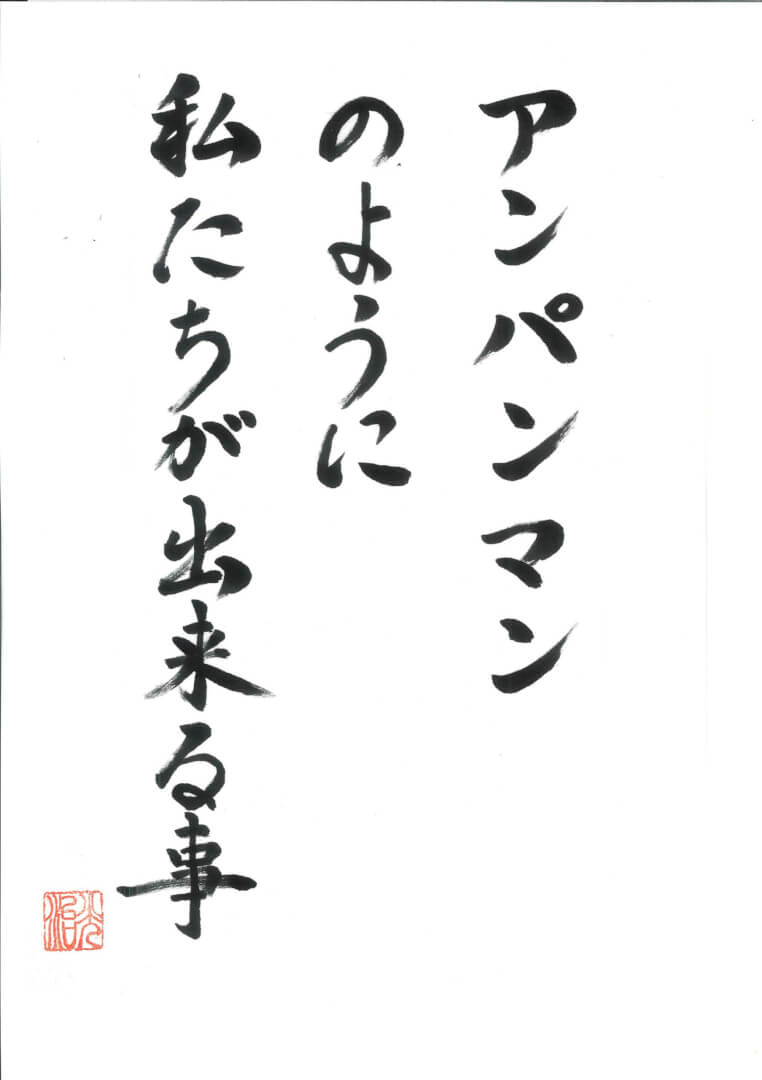 アンパンマン
のように
私たちが出来る事